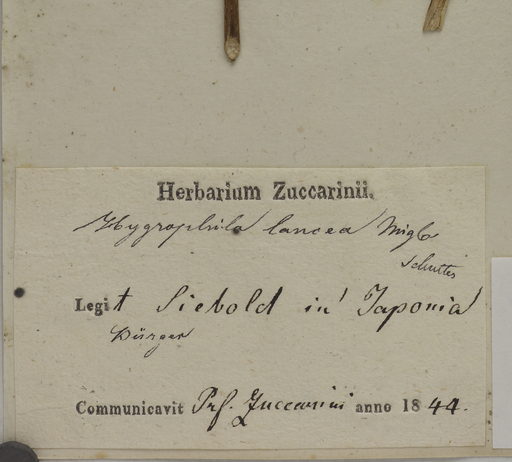 Herbarium Zuccarinii.
Hygrophila lancea Miq
Legit Siebold in Japonia
Bürger
Communicavit Prf. Zuccarini anno 1844.